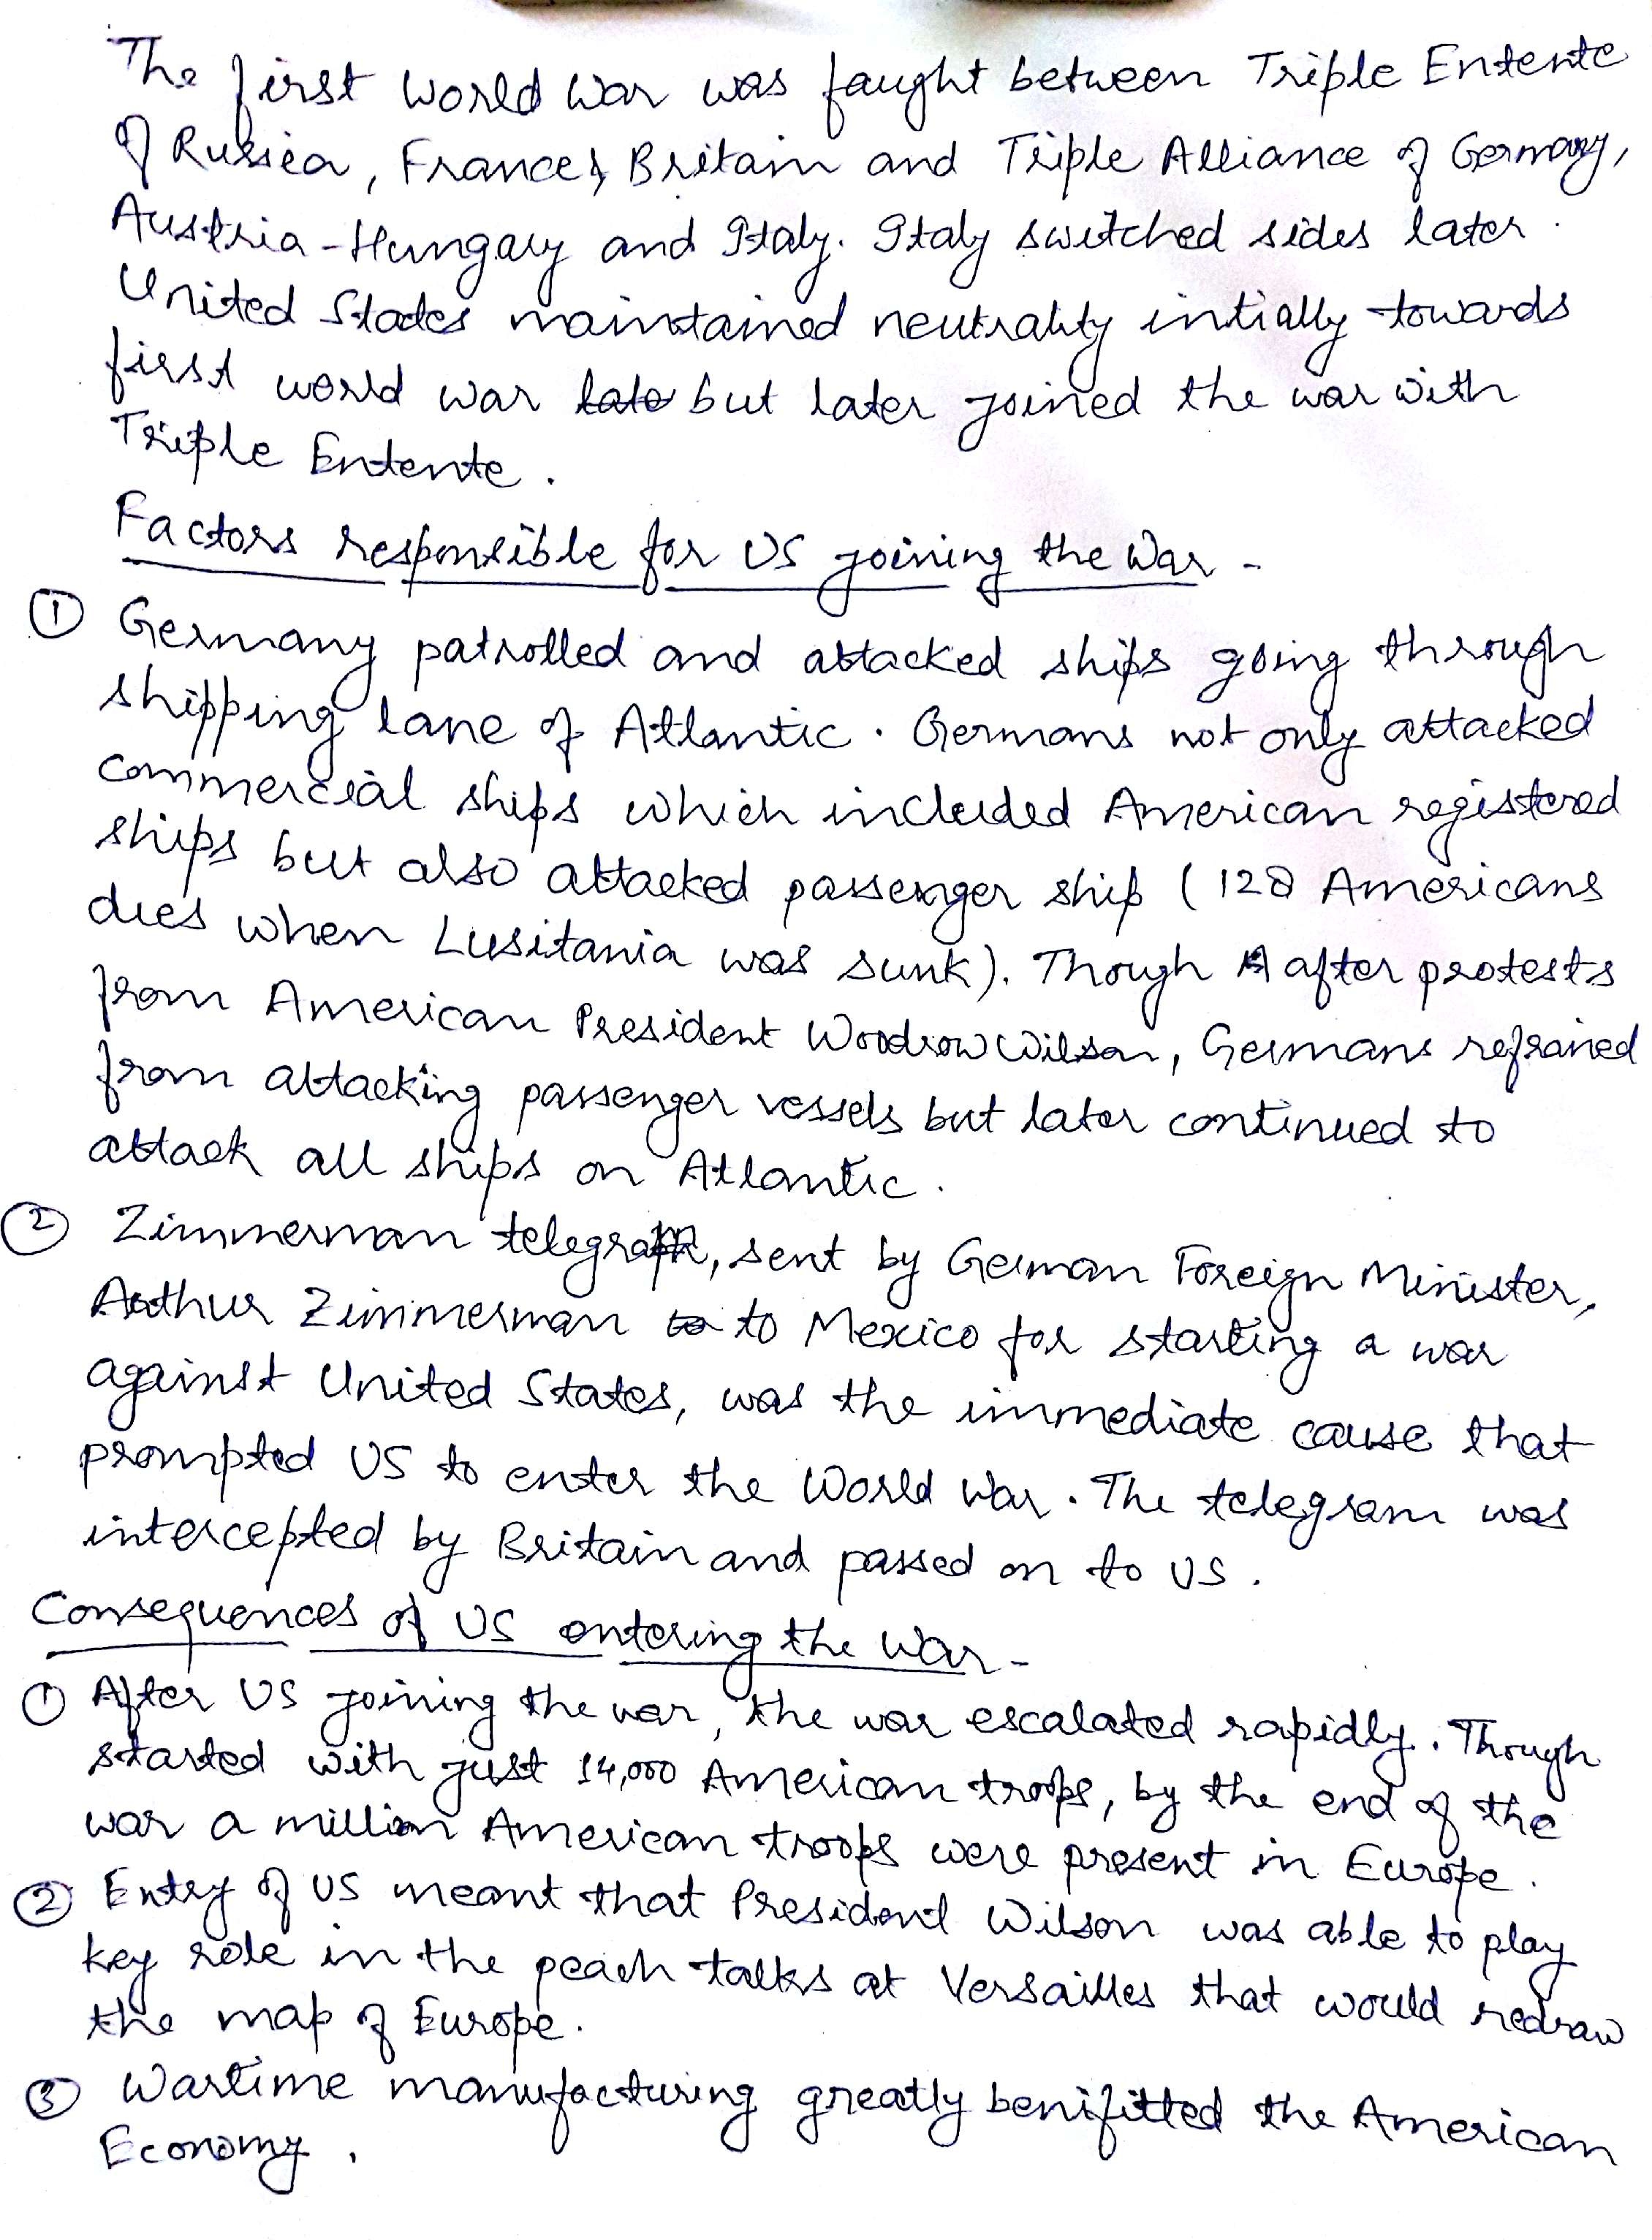 The first World War was faught between Triple Entente
of Russia, France & Britain and Triple Alliance of Germany,
Austria-Hungary and Italy. Italy switched sides later.
United States maintained neutrality intially towards
first world war late but later joined the war with
Triple Entente.
Factors responsible for US joining the War -
① Germany patrolled and attacked ships going through
shipping lane of Atlantic. Germans not only attacked
commercial ships which included American registered
ships but also attacked passenger ship (128 Americans
died when Lusitania was sunk). Though after protests
from American President Woodrow Wilson, Germans refrained
from attacking passenger vessels but later continued to
attack all ships on Atlantic.
② Zimmerman telegram, sent by German Foreign Minister,
Arthur Zimmerman to to Mexico for starting a war
against United States, was the immediate cause that
prompted US to enter the World War. The telegram was
intercepted by Britain and passed on to US.
Consequences of US entering the War -
① After US joining the war, the war escalated rapidly. Though
started with just 14,000 American troops, by the end of the
war a million American troops were present in Europe.
② Entry of US meant that President Wilson was able to play
key role in the peach talks at Versailles that would redraw
the map of Europe.
③ Wartime manufacturing greatly benifitted the American
Economy.